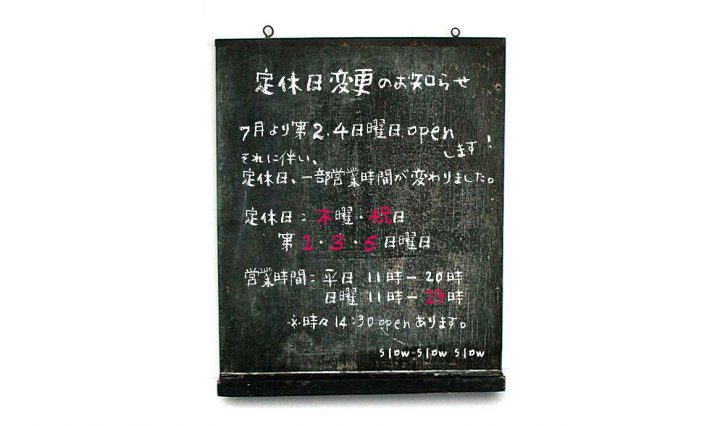 定休日変更のお知らせ
7月より第2.4日曜日open
します!
それに伴い、
定休日、一部営業時間が変わりました。
定休日:木曜・祝日
第1・3・5日曜日
営業時間:平日 11時ー20時
日曜 11時ー19時
※時々14:30openあります。
slow slow slow